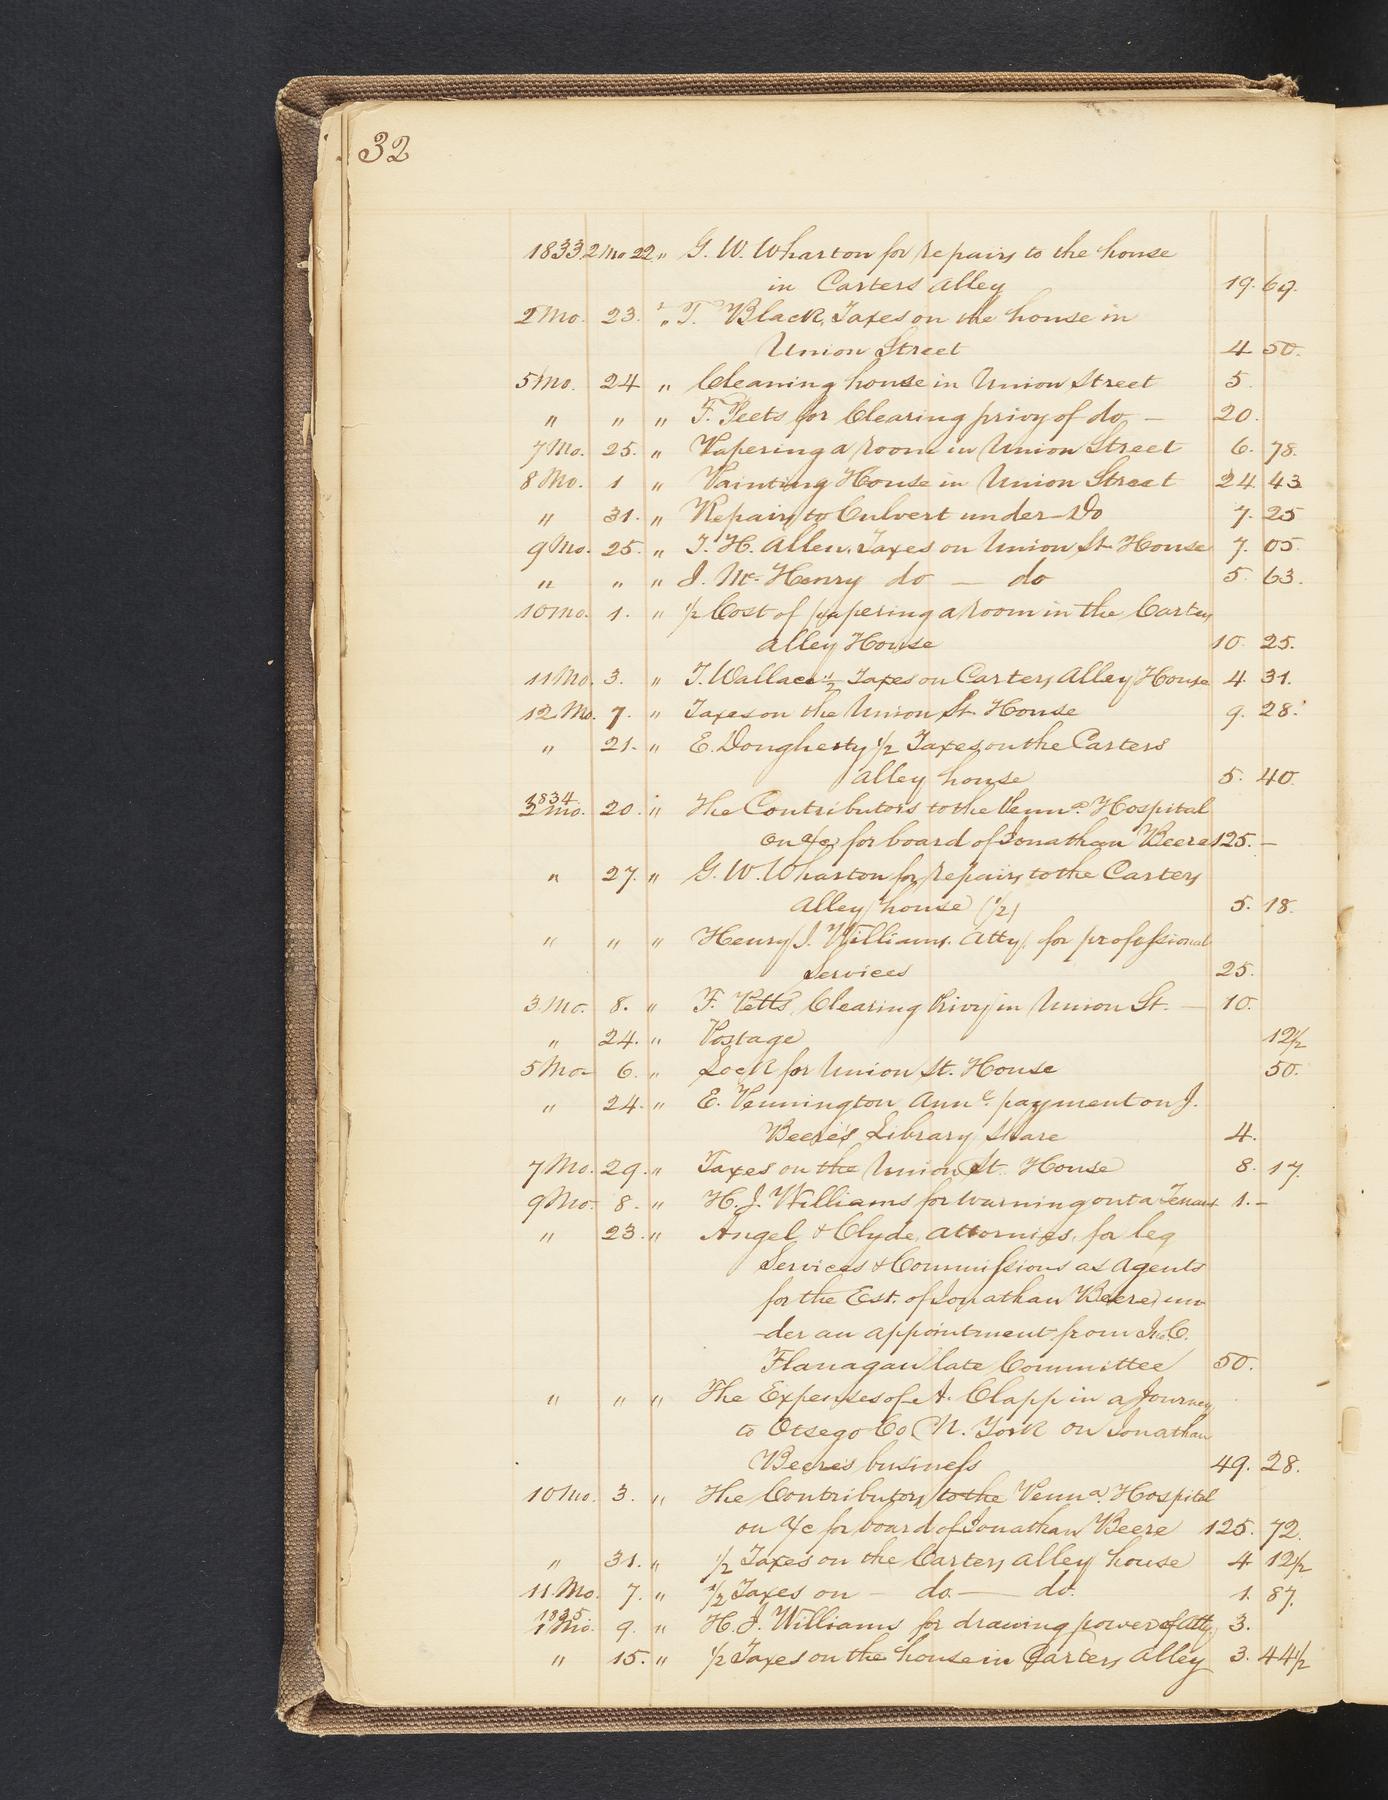 32
1833 2 Mo 22 " G. W. Wharton for repairs to the house
in Carters Alley 19. 69.
2 Mo. 23. " T. Black, Taxes on the house in
Union Street 4 50.
5 Mo. 24 " Cleaning house in Union Street 5.
" " " F. Peets for Clearing privy of do — 20.
7 Mo. 25. " Papering a room in Union Street 6. 78.
8 Mo. 1 " Painting House in Union Street 24 43
" 31. " Repairs to Culvert under — Do 7. 25
9 Mo. 25. " T. H. Allen, Taxes on Union St. House 7. 05.
" " " J. Mc. Henry do — do 5. 63.
10 mo. 1. " ½ Cost of papering a room in the Carters
Alley House 10. 25.
11 Mo. 3. " T. Wallace ½ Taxes on Carters Alley House 4. 31.
12 Mo. 7. " Taxes on the Union St. House 9. 28.
" 21. " E. Dougherty ½ Taxes on the Carters
Alley house 5. 40.
1834
2 mo. 20. " The Contributors to the Penna. Hospital
on a/c for board of Jonathan Beere 125. —
" 27. " G. W. Wharton for repairs to the Carters
Alley house (½) 5. 18.
" " " Henry J. Williams. Atty. for professional
Services 25.
3 Mo. 8. " F. Petts Clearing Privy in Union St. — 10.
" 24. " Postage 12½
5 Mo- 6. " Lock for Union St. House 50.
" 24. " E. Pennington Annl. payment on J.
Beere's Library Share 4.
7 Mo. 29. " Taxes on the Union St. House 8. 17.
9 Mo. 8. " H. J. Williams for warning out a Tenant 1. –
" 23. " Angel & Clyde, Attornies, for leg
Services & Commissions as Agents
for the Est. of Jonathan Beere, un
-der an appointment from Jno. C.
Flanagan late Committee 50.
" " " The Expenses of A. Clapp in a Journey
to Otsego Co (N. York on Jonathan
Beere's business 49. 28.
10 mo. 3. " The Contributors to the Penna. Hospital
on a/c for board of Jonathan Beere 125. 72.
" 31. " ½ Taxes on the Carters Alley house 4 12½
11 Mo. 7. " ½ Taxes on — do — do. 1. 87.
1835
1 Mo. 9. " H. J. Williams for drawing power of Atty. 3.
" 15. " ½ Taxes on the house in Carters Alley 3. 44½